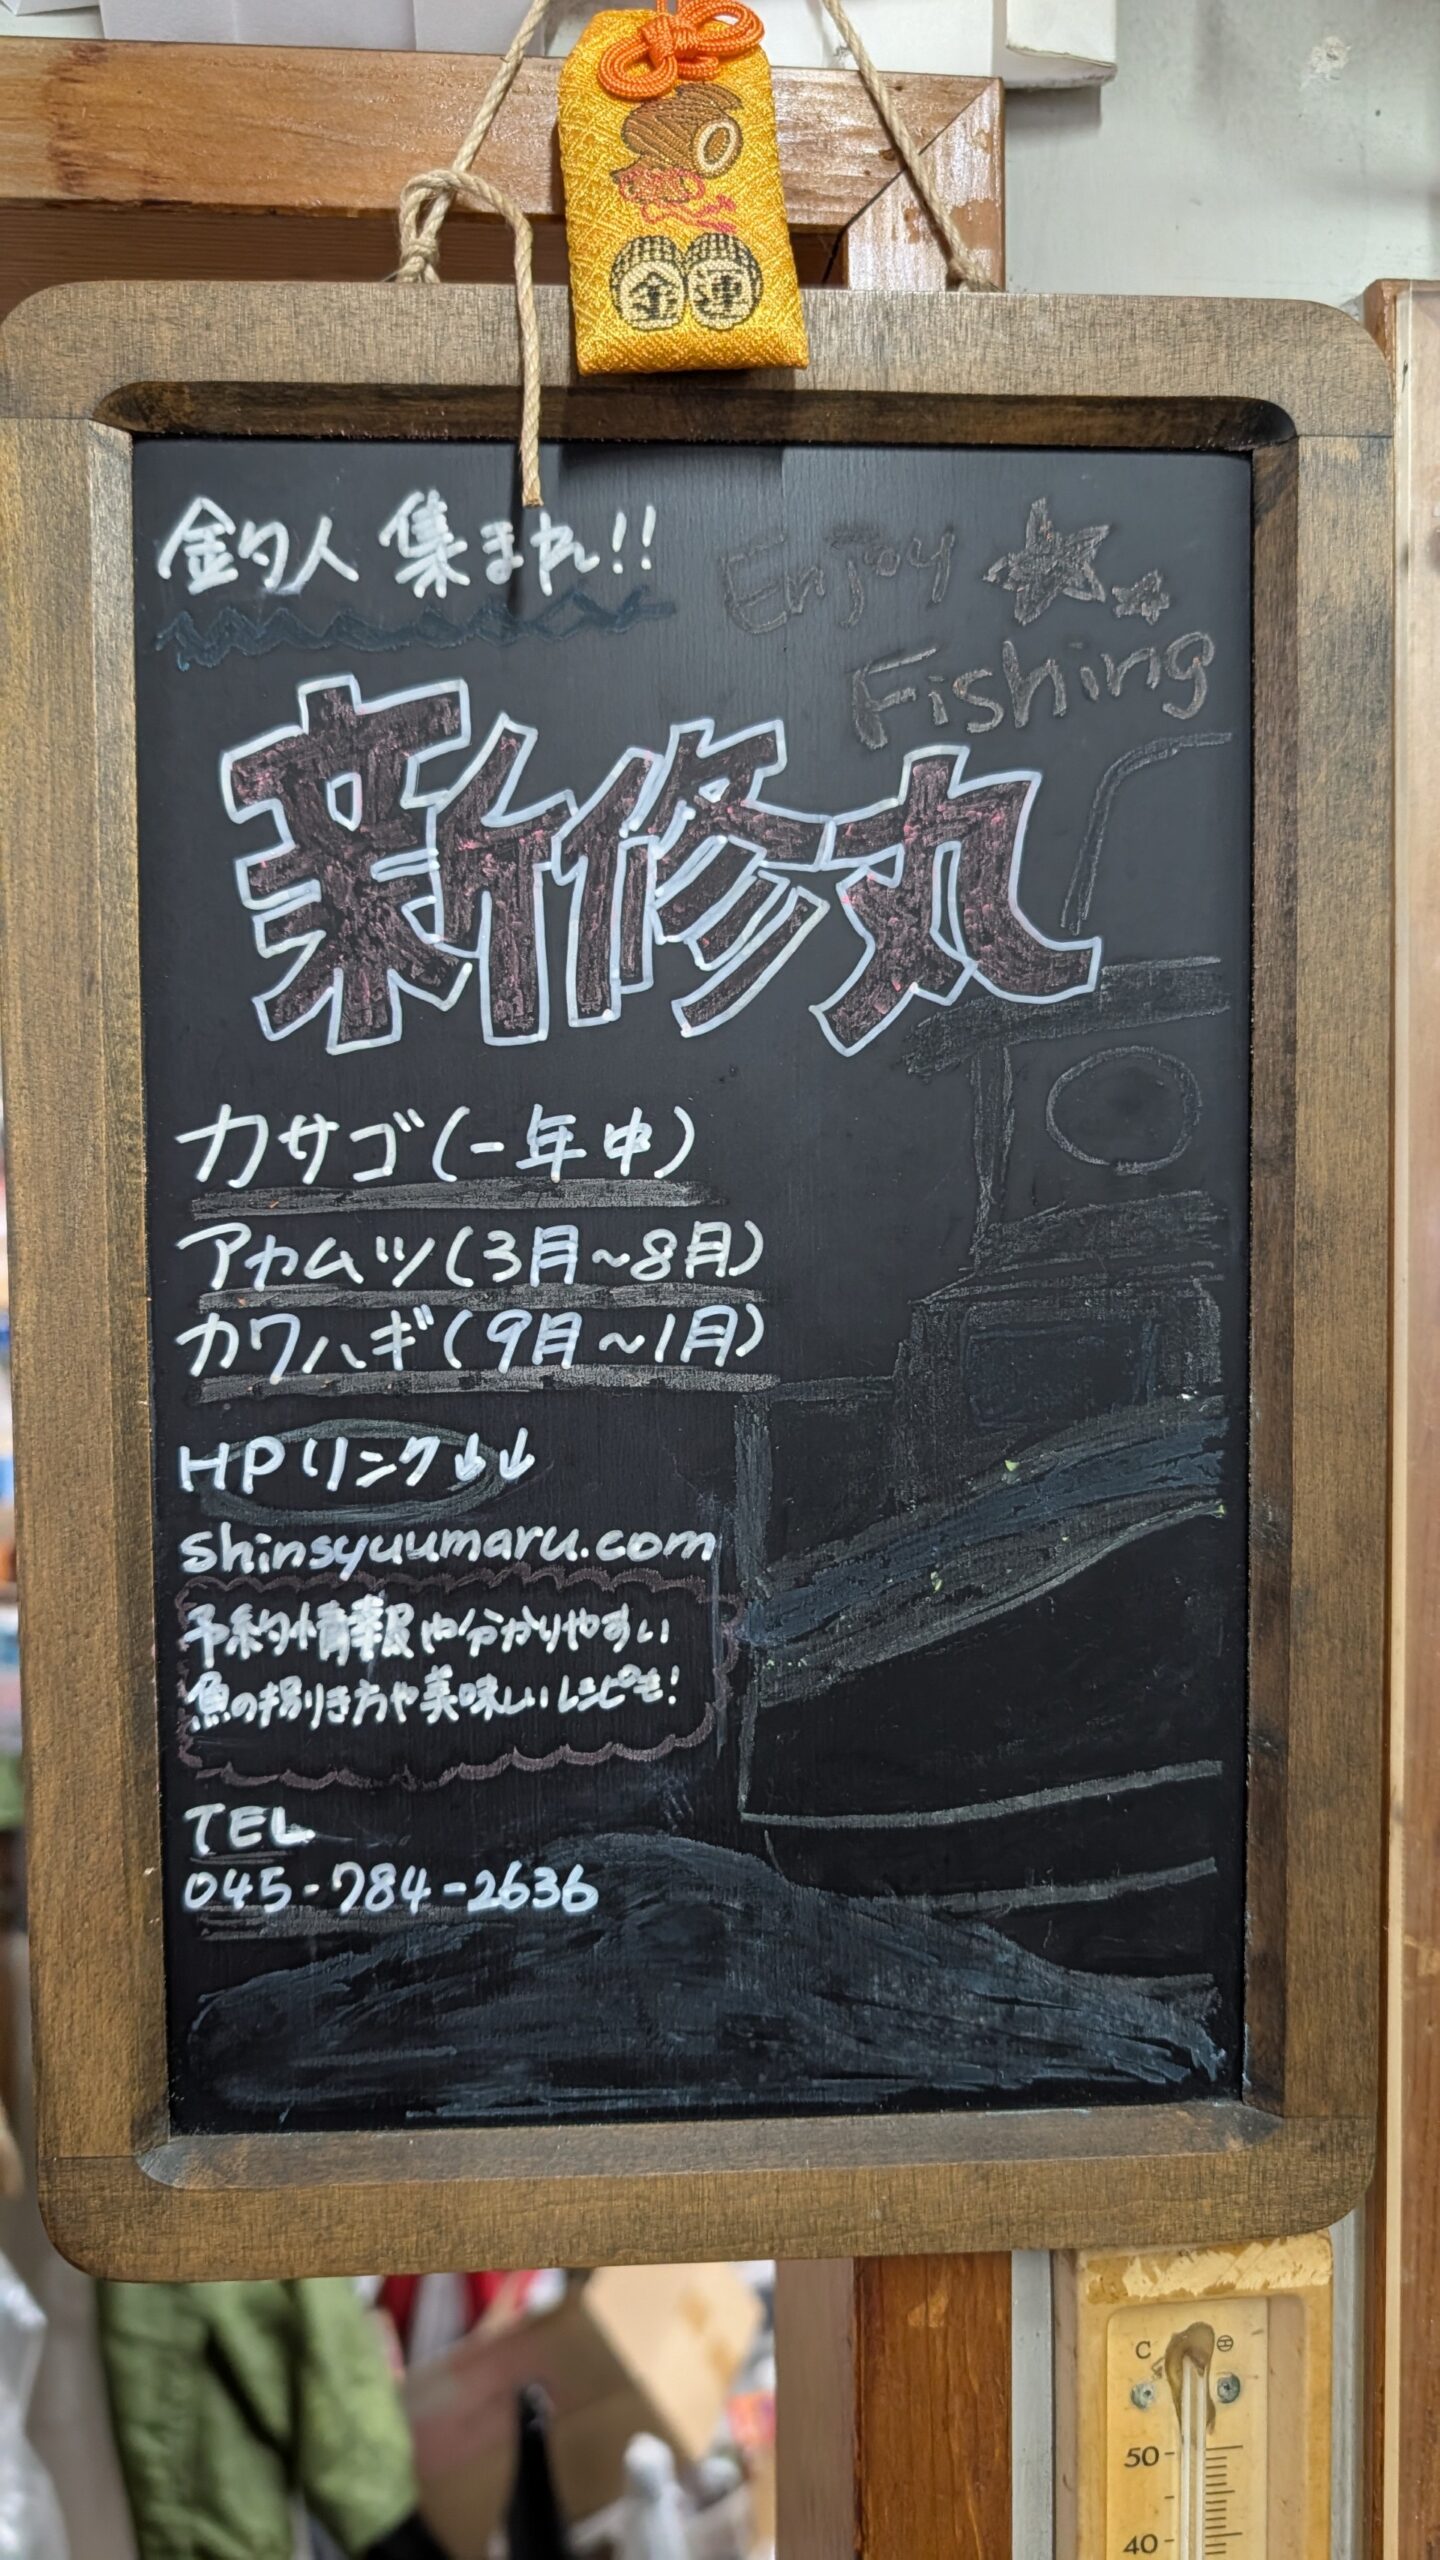 金運
釣人 集まれ!!
Enjoy
Fishing
新修丸
カサゴ(一年中)
アカムツ(3月~8月)
カワハギ(9月~1月)
HPリンク↓↓
shinsyuumaru.com
予約情報や分かりやすい
魚の捌き方や美味しいレシピも!
TEL
045-784-2636
C
50
40